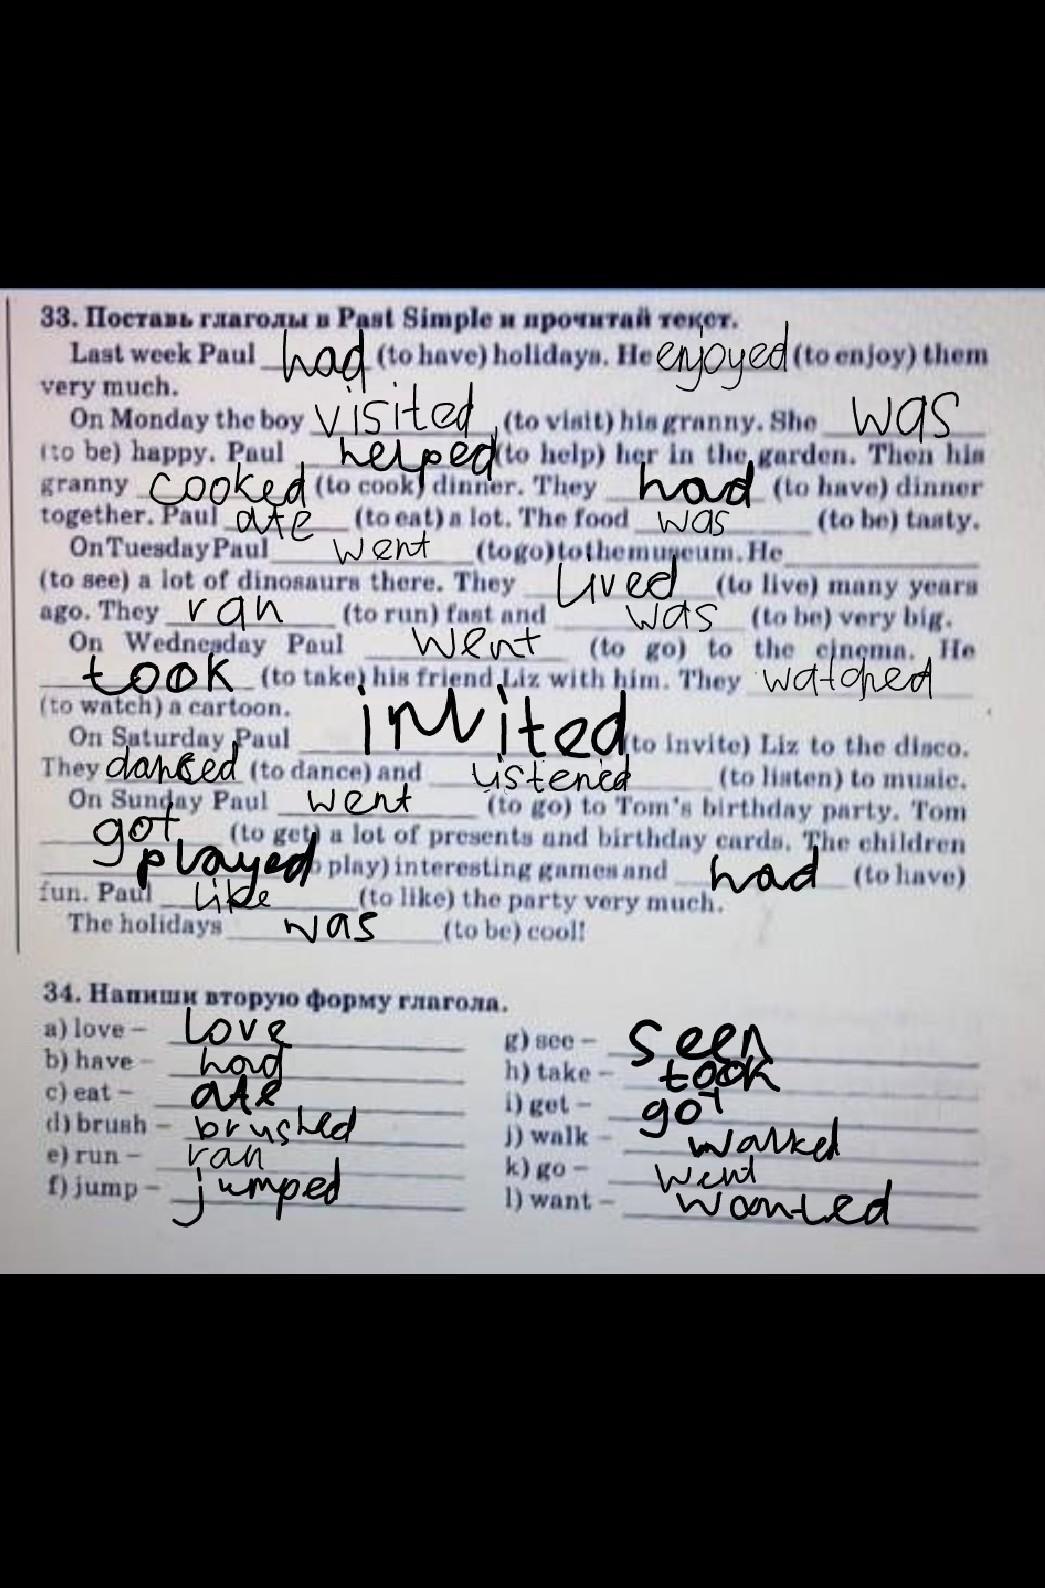 33. Поставь глаголы в Past Simple и прочитай текст.
Last week Paul had (to have) holidays. He enjoyed (to enjoy) them
very much.
On Monday the boy visited (to visit) his granny. She was
(to be) happy. Paul helped (to help) her in the garden. Then his
granny cooked (to cook) dinner. They had (to have) dinner
together. Paul ate (to eat) a lot. The food was (to be) tasty.
On Tuesday Paul went (to go) to the museum. He
(to see) a lot of dinosaurs there. They lived (to live) many years
ago. They ran (to run) fast and was (to be) very big.
On Wednesday Paul went (to go) to the cinema. He
took (to take) his friend Liz with him. They watched
(to watch) a cartoon.
On Saturday Paul invited (to invite) Liz to the disco.
They danced (to dance) and listened (to listen) to music.
On Sunday Paul went (to go) to Tom's birthday party. Tom
got (to get) a lot of presents and birthday cards. The children
played play) interesting games and had (to have)
fun. Paul like (to like) the party very much.
The holidays was (to be) cool!
34. Напиши вторую форму глагола.
a) love – love
b) have – had
c) eat – ate
d) brush – brushed
e) run – ran
f) jump – jumped
g) see – seen
h) take – took
i) get – got
j) walk – walked
k) go – went
l) want – wanted